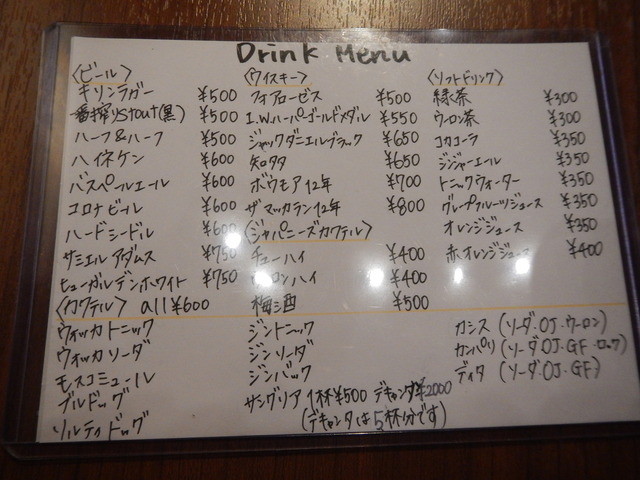 Drink Menu
〈ビール〉
キリンラガー ¥500
一番搾りStout(黒) ¥500
ハーフ&ハーフ ¥500
ハイネケン ¥600
バスペールエール ¥600
コロナビール ¥600
ハードシードル ¥600
サミエルアダムス ¥750
ヒューガルデンホワイト ¥750
〈ウイスキー〉
フォアローゼス ¥500
I.W.ハーパーゴールドメダル ¥550
ジャックダニエルブラック ¥650
知多 ¥650
ボウモア12年 ¥700
ザ マッカラン12年 ¥800
〈ジャパニーズカクテル〉
チューハイ ¥400
ウーロンハイ ¥400
梅酒 ¥500
〈ソフトドリンク〉
緑茶 ¥300
ウーロン茶 ¥300
コカコーラ ¥350
ジンジャーエール ¥350
トニックウォーター ¥350
グレープフルーツジュース ¥350
オレンジジュース ¥350
赤オレンジジュース ¥400
〈カクテル〉 all¥600
ウォッカトニック
ウォッカソーダ
モスコミュール
ブルドッグ
ソルティドッグ
ジントニック
ジンソーダ
ジンバック
サングリア 1杯¥500 デキャンタ¥2000
(デキャンタは5杯分です)
カシス (ソーダ・OJ・ウーロン)
カンパリ (ソーダ・OJ・GF・ロック)
ディタ (ソーダ・OJ・GF)